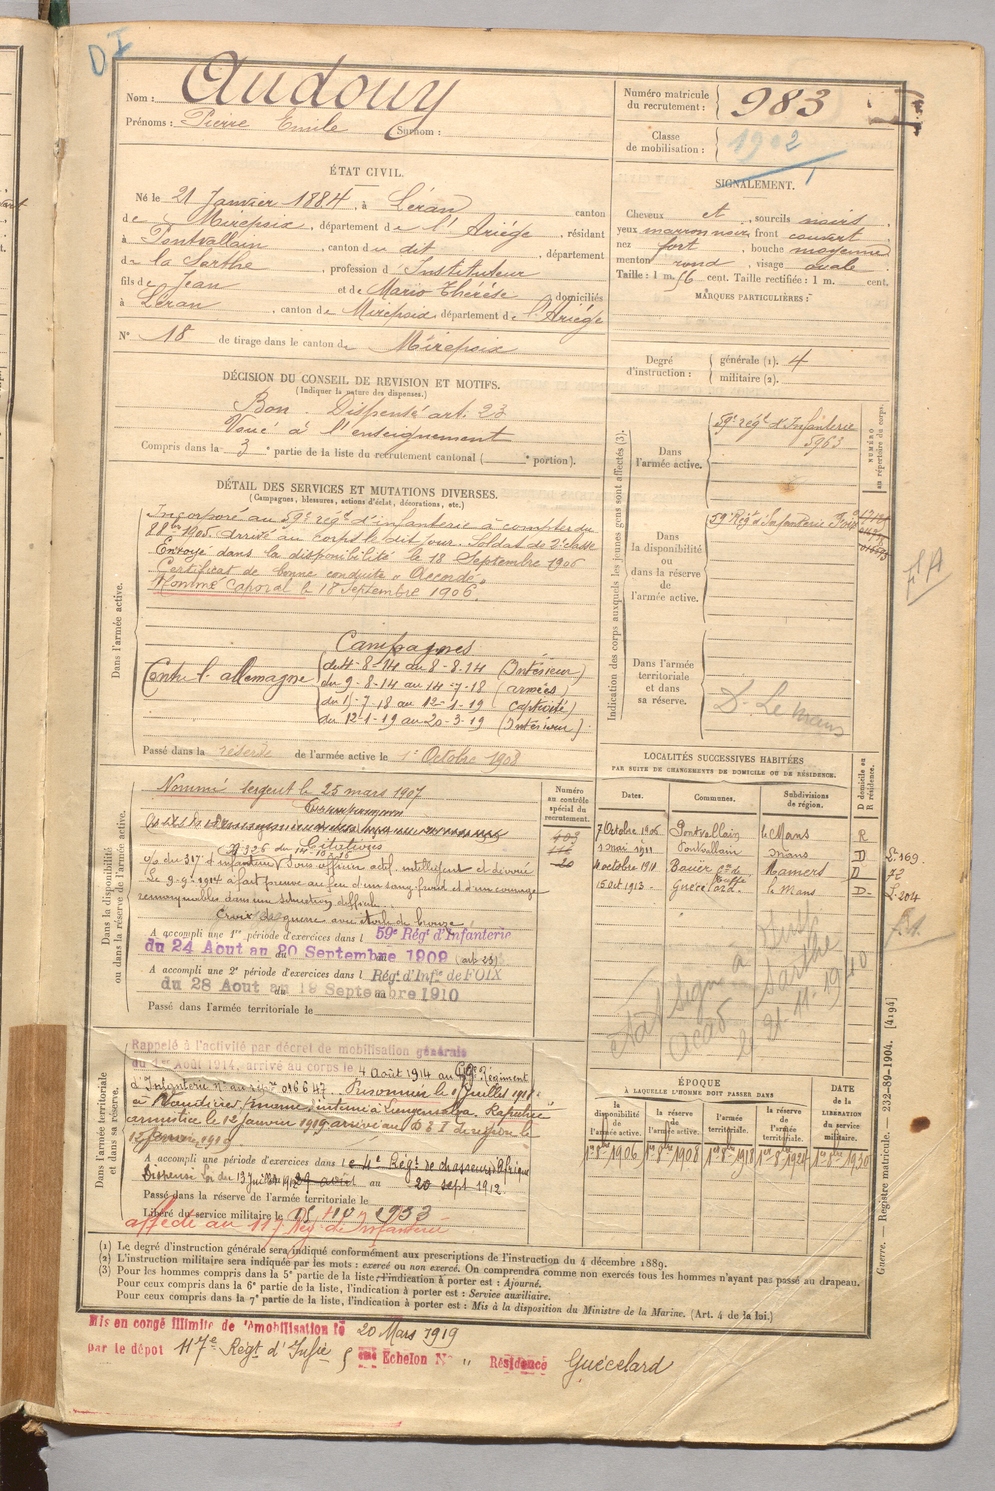 DI
Nom : Audouy
Prénoms : Pierre Emile Surnom :
Numéro matricule du recrutement : 983
Classe de mobilisation : 1902
ÉTAT CIVIL.
Né le 21 Janvier 1884, à Léran canton
de Mirepoix, département de l'Ariège, résidant
à Pontvallain, canton du dit, département
de la Sarthe, profession d'Instituteur
fils de Jean et de Marie Thérèse domiciliés
à Léran, canton de Mirepoix département de l'Ariège
N° 18 de tirage dans le canton de Mirepoix
SIGNALEMENT.
Cheveux et, sourcils noirs
yeux marron noir, front couvert
nez fort, bouche moyenne
menton rond, visage ovale
Taille : 1 m. 56 cent. Taille rectifiée : 1 m. cent.
MARQUES PARTICULIÈRES :
Degré d'instruction : générale (1). 4
militaire (2).
DÉCISION DU CONSEIL DE REVISION ET MOTIFS.
(Indiquer la nature des dispenses.)
Bon. Dispensé art. 23
Voué à l'enseignement
Compris dans la 3e partie de la liste du recrutement cantonal ( e portion).
DÉTAIL DES SERVICES ET MUTATIONS DIVERSES.
(Campagnes, blessures, actions d'éclat, décorations, etc.)
Dans l'armée active.
Incorporé au 59e régt d'infanterie à compter du
8 8bre 1905. Arrivé au corps le dit jour. Soldat de 2e classe
Envoyé dans la disponibilité le 18 Septembre 1906
Certificat de bonne conduite "Accordé"
Nommé Caporal le 18 Septembre 1906.
Campagnes
Contre l'allemagne
du 4-8-14 au 8-8-14 (Intérieur)
du 9-8-14 au 14-7-18 (armées)
du 15-7-18 au 12-1-19 captivité)
du 12-1-19 au 20-3-19 (Intérieur)
Passé dans la réserve de l'armée active le 1er Octobre 1908
Indication des corps auxquels les jeunes gens sont affectés (3).
NUMÉRO au répertoire du corps.
Dans l'armée active.
59e régt d'Infanterie
5963
Dans la disponibilité ou dans la réserve de l'armée active.
59e Régt d'Infanterie Foix
Dans l'armée territoriale et dans sa réserve.
D. Le Mans
Dans la disponibilité ou dans la réserve de l'armée active.
Nommé Sergent le 25 mars 1907
Citations
du 317e d'infanterie (Sous officier actif intelligent et dévoué
Le 9-9-1914 a fait preuve au feu d'un sang froid et d'un courage
remarquables dans une situation difficile.
Croix de guerre avec étoile de bronze
A accompli une 1re période d'exercices dans l 59e Régt d'Infanterie
du 24 Aout au 20 Septembre 1909 (art 23)
A accompli une 2e période d'exercices dans l Régt d'Infie de FOIX
du 28 Aout au 19 Septembre 1910
Passé dans l'armée territoriale le
Numéro au contrôle spécial du recrutement.
LOCALITÉS SUCCESSIVES HABITÉES
PAR SUITE DE CHANGEMENTS DE DOMICILE OU DE RÉSIDENCE.
Dates. Communes. Subdivisions de région. D domicile ou R résidence.
7 Octobre 1906 Pontvallain le Mans R
Mai 1911 Pontvallain Mans D
octobre 1911 Mamers D
15 Oct 1913 Guécelard le Mans D
Dans l'armée territoriale et dans sa réserve.
Rappelé à l'activité par décret de mobilisation générale
du 1er Août 1914, arrivé au corps le 4 Août 1914 au Régiment
d'Infanterie N° au répre 016647. Prisonnier le Juillet 1918
Rapatrié
armistice le 12 janvier 1919 arrivé au
A accompli une période d'exercices dans le 4e Régt de chasseurs d'Afrique
au 20 sept 1912.
Passé dans la réserve de l'armée territoriale le
Libéré du service militaire le 15 10 1933
affecté au 117 Rég. de Infanterie
ÉPOQUE
À LAQUELLE L'HOMME DOIT PASSER DANS
la disponibilité de l'armée active. la réserve de l'armée active. l'armée territoriale. la réserve de l'armée territoriale.
DATE de la LIBÉRATION du service militaire.
1er 8bre 1906 1er 8bre 1908 1er 8bre 1918 1er 8bre 1924 1er 8bre 1930
(1) Le degré d'instruction générale sera indiqué conformément aux prescriptions de l'instruction du 4 décembre 1889.
(2) L'instruction militaire sera indiquée par les mots : exercé ou non exercé. On comprendra comme non exercés tous les hommes n'ayant pas passé au drapeau.
(3) Pour les hommes compris dans la 5e partie de la liste, l'indication à porter est : Ajourné.
Pour ceux compris dans la 6e partie de la liste, l'indication à porter est : Service auxiliaire.
Pour ceux compris dans la 7e partie de la liste, l'indication à porter est : Mis à la disposition du Ministre de la Marine. (Art. 4 de la loi.)
Guerre. — Registre matricule. — 232-89-1904. [4194]
Mis en congé illimité de démobilisation le 20 Mars 1919
par le dépot 117e Régt d'Infie 5 eme Echelon N° " Résidence Guécelard